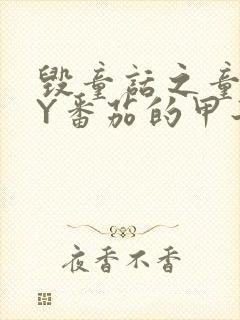 毁童话之童
Y番茄的甲
夜香不香